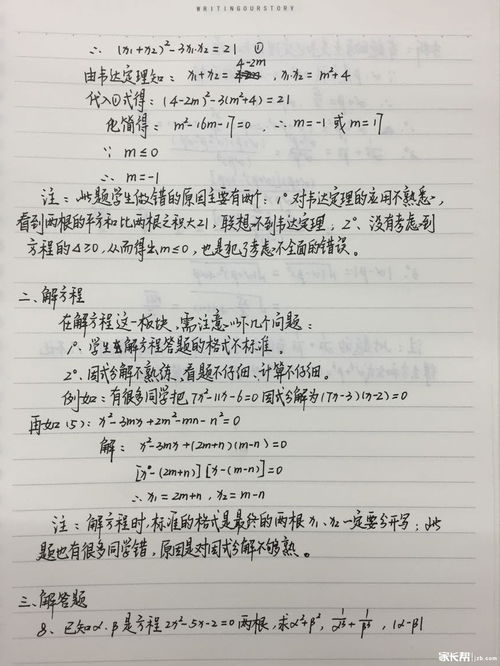 WRITINGOURSTORY
∴ (x₁+x₂)²-3x₁·x₂=21 ①
由韦达定理知：x₁+x₂=4-2m，x₁·x₂=m²+4
代入①式得：(4-2m)²-3(m²+4)=21
化简得：m²-16m-17=0，∴m=-1或m=17
∵ m≤0
∴ m=-1
注：此题学生做错的原因主要有两个：1°对韦达定理的应用不熟悉，
看到两根的平方和比两根之积大21，联想不到韦达定理；2°没有考虑到
方程的△≥0，从而得出m≤0，也是犯了考虑不全面的错误。
二、解方程
在解方程这一板块，需注意以下几个问题：
1°学生解方程答题的格式不标准。
2°因式分解不熟练、看题不仔细、计算不仔细。
例如：有很多同学把7x²-11x-6=0因式分解为(7x-3)(x-2)=0
再如(5)：x²-3mx+2m²-mn-n²=0
解：x²-3mx+(2m+n)(m-n)=0
[x-(2m+n)][x-(m-n)]=0
∴x₁=2m+n，x₂=m-n
注：解方程时，标准的格式是最终的两根x₁、x₂一定要分开写；此
题也有很多同学错，原因是对因式分解不够熟。
三、解答题
8、已知α、β是方程2x²-5x-2=0两根，求α²+β²，|α-β|
家长帮 jzb.com